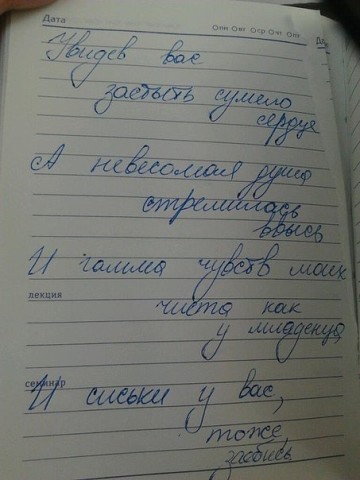 Дата
Опн Овт Оср Очт Опт
Увидев вас
застыть сумело
сердце
А невесомая душа
стремилась
ввысь
И гамма чувств моих
лекция
чиста как
у младенца,
семинар
И сиськи у вас,
тоже,
заебись.